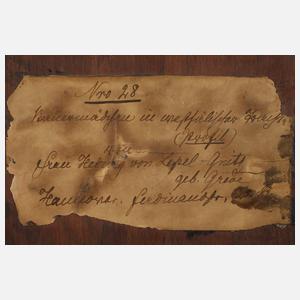 Nro 28
Bauernmädchen in westfälischer Tracht
(Profil)
von
Frau Hedwig von Lepel-Gnitz
geb. Grede
Hannover. Ferdinandstr.